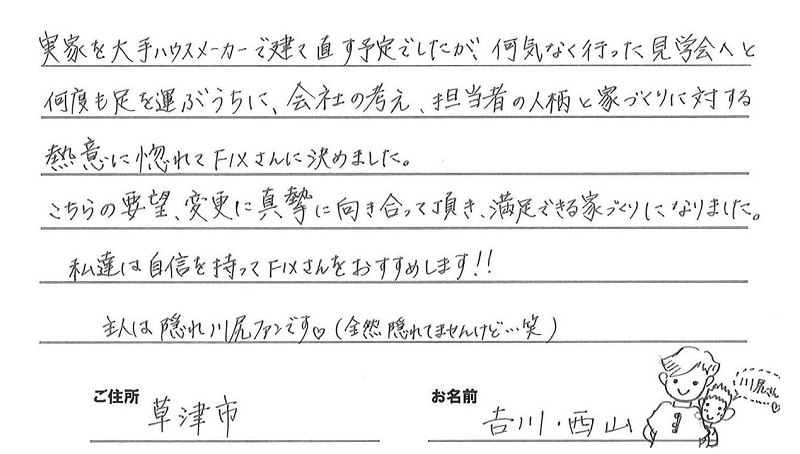 実家を大手ハウスメーカーで建て直す予定でしたが、何気なく行った見学会へと
何度も足を運ぶうちに、会社の考え、担当者の人柄と家づくりに対する
熱意に惚れてFIXさんに決めました。
こちらの要望、変更に真摯に向き合って頂き、満足できる家づくりになりました。
私達は自信を持ってFIXさんをおすすめします!!
主人は隠れ川尻ファンです♡(全然隠れてませんけど…笑)
川尻さん♡
ご住所 草津市
お名前 吉川・西山